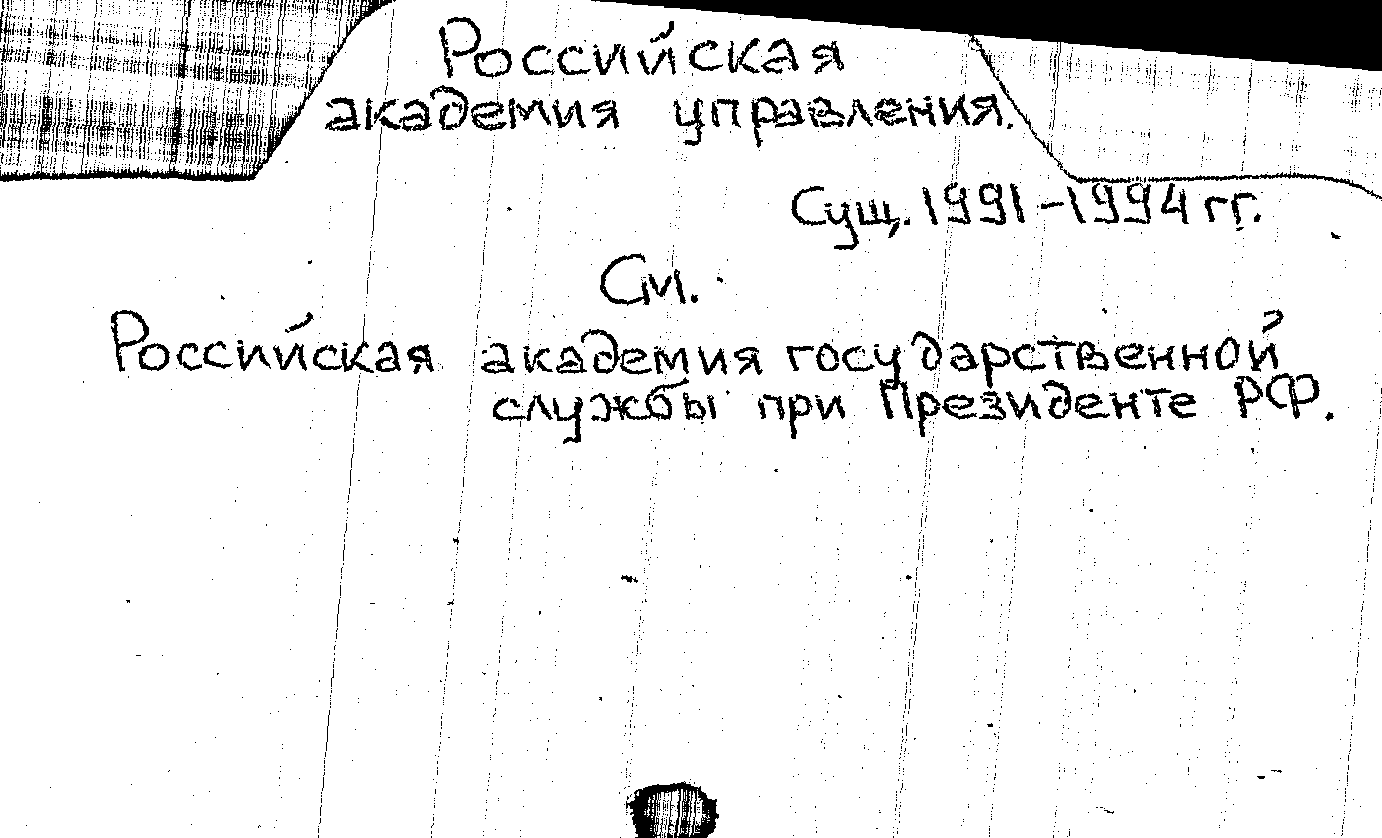 Российская
академия управления.
Сущ. 1991-1994 гг.
См.
Российская академия государственной
службы при Президенте РФ.